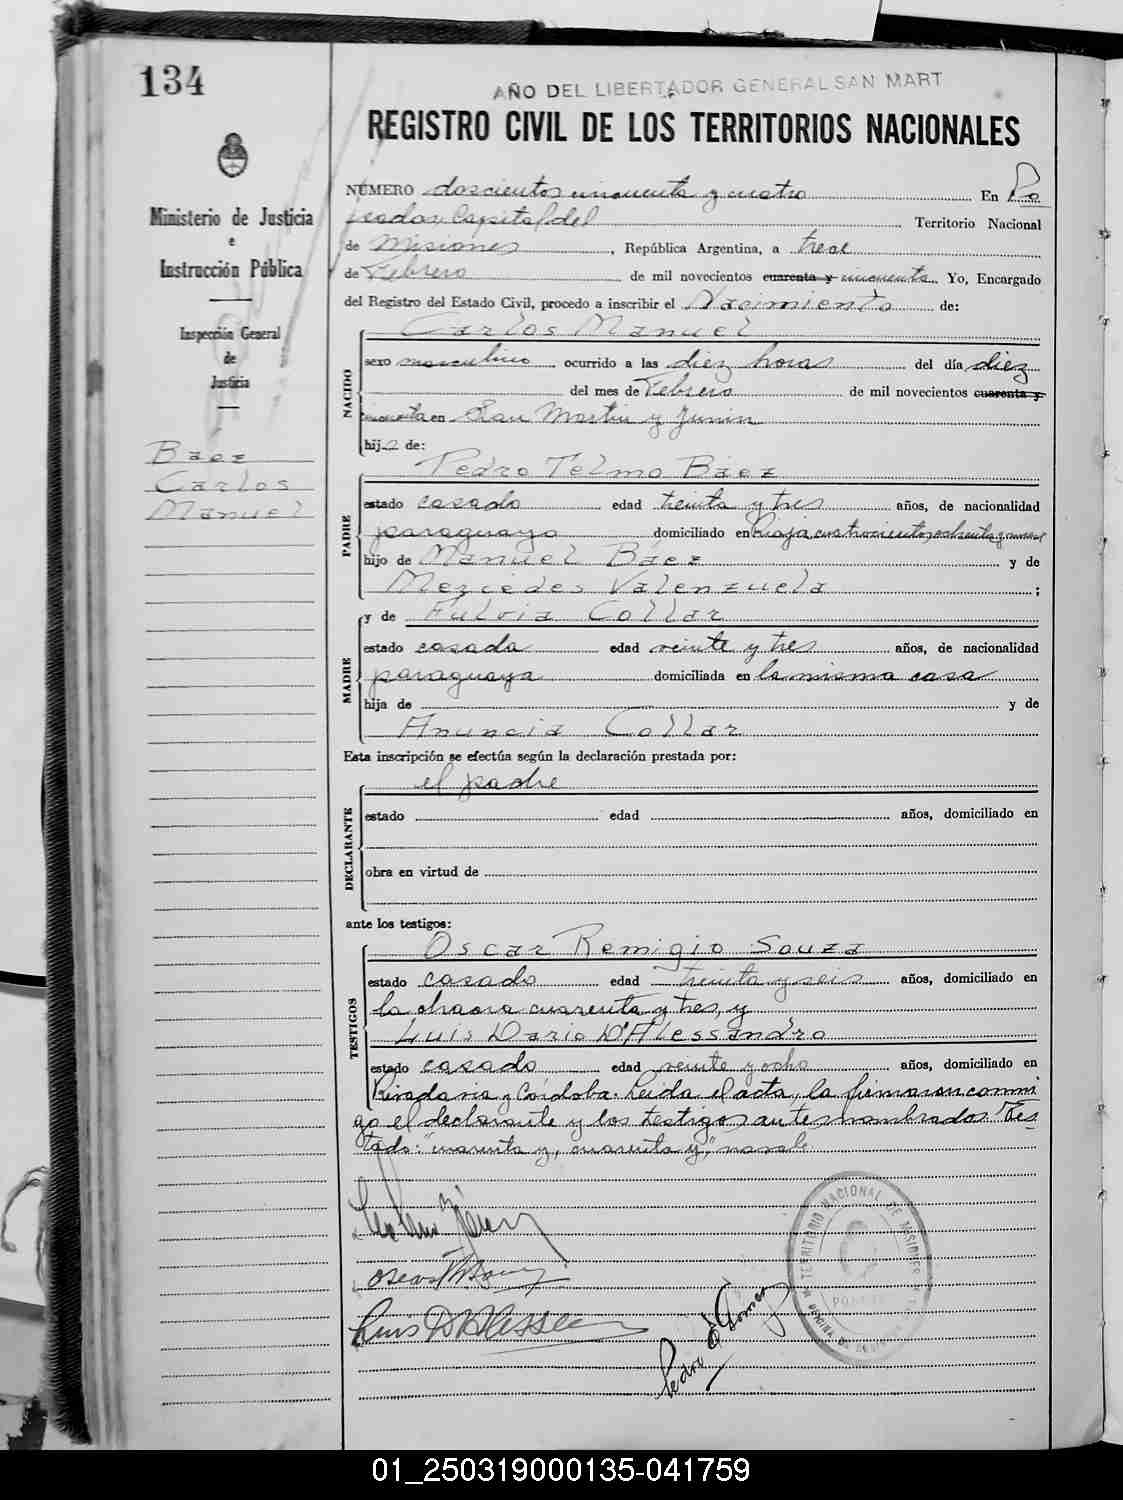 134
AÑO DEL LIBERTADOR GENERAL SAN MART
REGISTRO CIVIL DE LOS TERRITORIOS NACIONALES
Ministerio de Justicia
e
Instrucción Pública
Inspección General
de
Justicia
Báez
Carlos
Manuel
NÚMERO doscientos cincuenta y cuatro En Po
sadas, Capital del Territorio Nacional
de Misiones, República Argentina, a trece
de Febrero de mil novecientos cuarenta y cincuenta. Yo, Encargado
del Registro del Estado Civil, procedo a inscribir el Nacimiento de:
NACIDO
Carlos Manuel
sexo masculino ocurrido a las diez horas del día diez
del mes de Febrero de mil novecientos cuarenta y
cincuenta en San Martin y Junin
hijo de:
PADRE
Pedro Telmo Báez
estado casado edad treinta y tres años, de nacionalidad
paraguaya domiciliado en Rioja cuatrocientos ochenta y nueve
hijo de Manuel Báez y de
Mercedes Valenzuela;
MADRE
y de Fulvia Collar
estado casada edad veinte y tres años, de nacionalidad
paraguaya domiciliada en la misma casa
hija de y de
Anuncia Collar
Esta inscripción se efectúa según la declaración prestada por:
DECLARANTE
el padre
estado edad años, domiciliado en
obra en virtud de
ante los testigos:
TESTIGOS
Oscar Remigio Souza
estado casado edad treinta y seis años, domiciliado en
la chacra cuarenta y tres, y
Luis Dario D'Alessandro
estado casado edad veinte y ocho años, domiciliado en
Rivadavia y Córdoba. Leida el acta, la firmaron conmi
go el declarante y los testigos antes nombrados. Tes
tado: "cuarenta y, cuarenta y," no vale
Pedro Gomez
TERRITORIO NACIONAL DE MISIONES
01_250319000135-041759